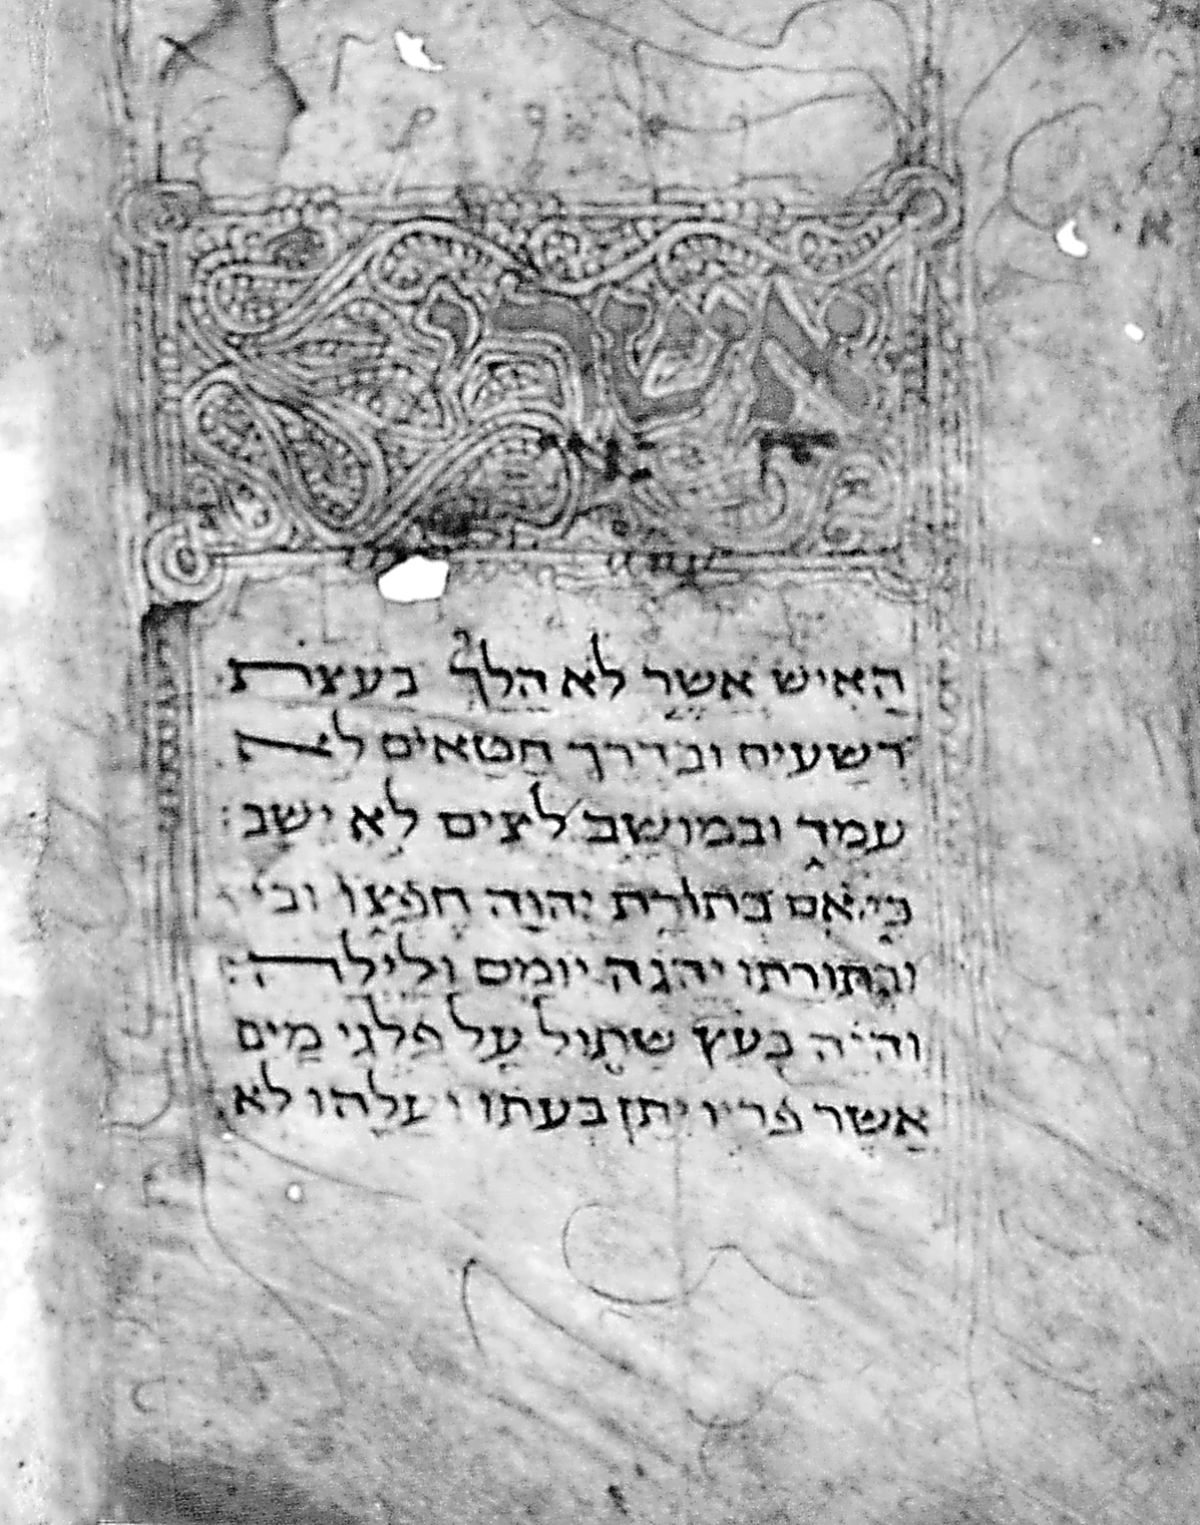 אשרי
האיש אשר לא הלך בעצת
רשעים ובדרך חטאים לא
עמד ובמושב לצים לא ישב:
כי אם בתורת יהוה חפצו ובי
ובתורתו יהגה יומם ולילה:
והיה כעץ שתול על פלגי מים
אשר פריו יתן בעתו ועלהו לא